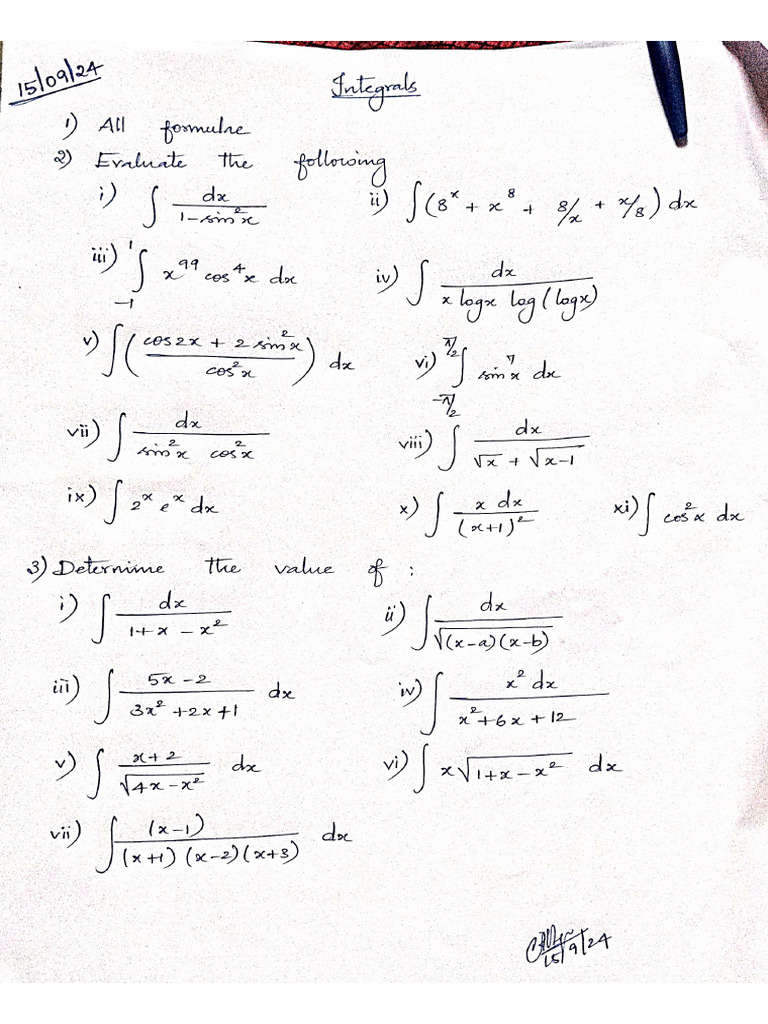 15/09/24
Integrals
1) All formulae
2) Evaluate the following
i) ∫ dx / (1 - sin²x)   ii) ∫ (8ˣ + x⁸ + 8/x + x/8) dx
iii) ∫₋₁¹ x⁹⁹ cos⁴x dx   iv) ∫ dx / (x logx log(logx))
v) ∫ ((cos2x + 2 sin²x) / cos²x) dx   vi) ∫ from -π/2 to π/2 sin⁷x dx
vii) ∫ dx / (sin²x cos²x)   viii) ∫ dx / (√x + √(x-1))
ix) ∫ 2ˣ eˣ dx   x) ∫ x dx / (x+1)²   xi) ∫ cos²x dx
3) Determine the value of :
i) ∫ dx / (1 + x - x²)   ii) ∫ dx / √((x-a)(x-b))
iii) ∫ (5x - 2) / (3x² + 2x + 1) dx   iv) ∫ x² dx / (x² + 6x + 12)
v) ∫ (x + 2) / √(4x - x²) dx   vi) ∫ x√(1 + x - x²) dx
vii) ∫ (x-1) / ((x+1)(x-2)(x+3)) dx
15/9/24